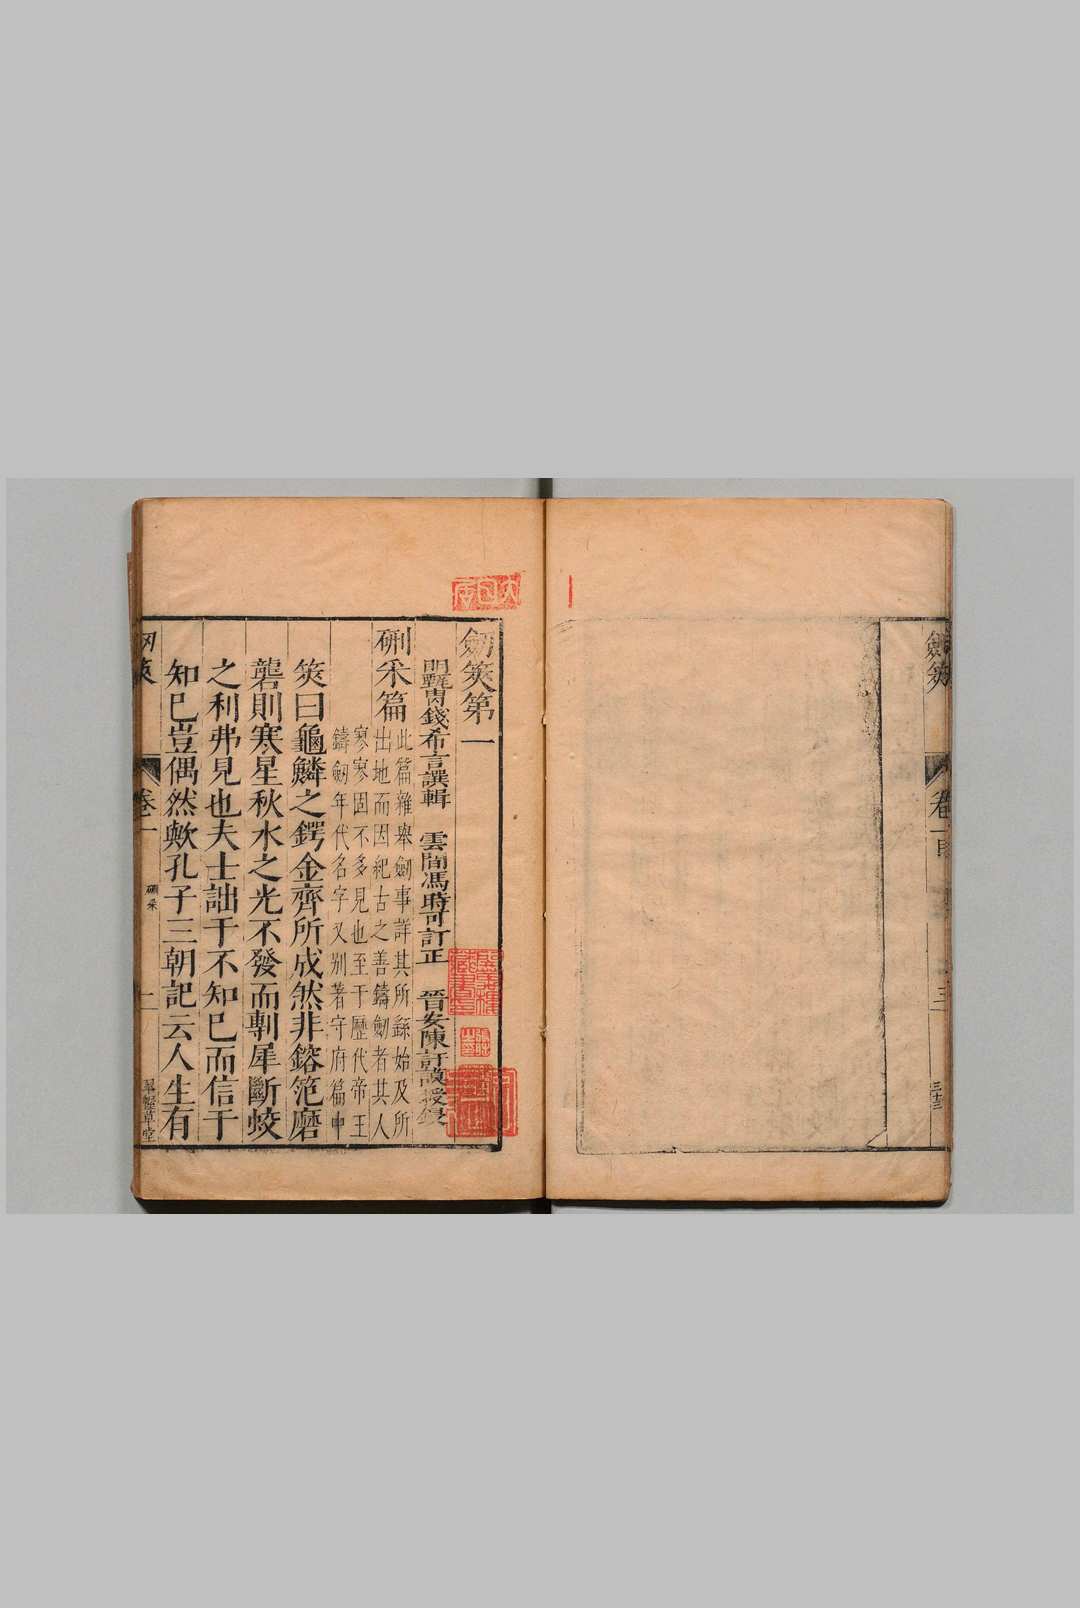 劒筴
卷一目
三十三
劒筴第一
錢希言譔輯 雲間馮時可訂正 晉安陳訏謨授錄
硎采篇
此篇雜舉劒事詳其所繇始及所
出地而因紀古之善鑄劒者其人
寥寥固不多見也至于歷代帝王
鑄劒年代名字又别著守府篇中
筴曰龜鱗之鍔金齊所成然非鎔笵磨
礱則寒星秋水之光不發而剸犀斷蛟
之利弗見也夫士詘于不知己而信于
知己豈偶然歟孔子三朝記云人生有
卷一
硎采
一
翠幄草堂